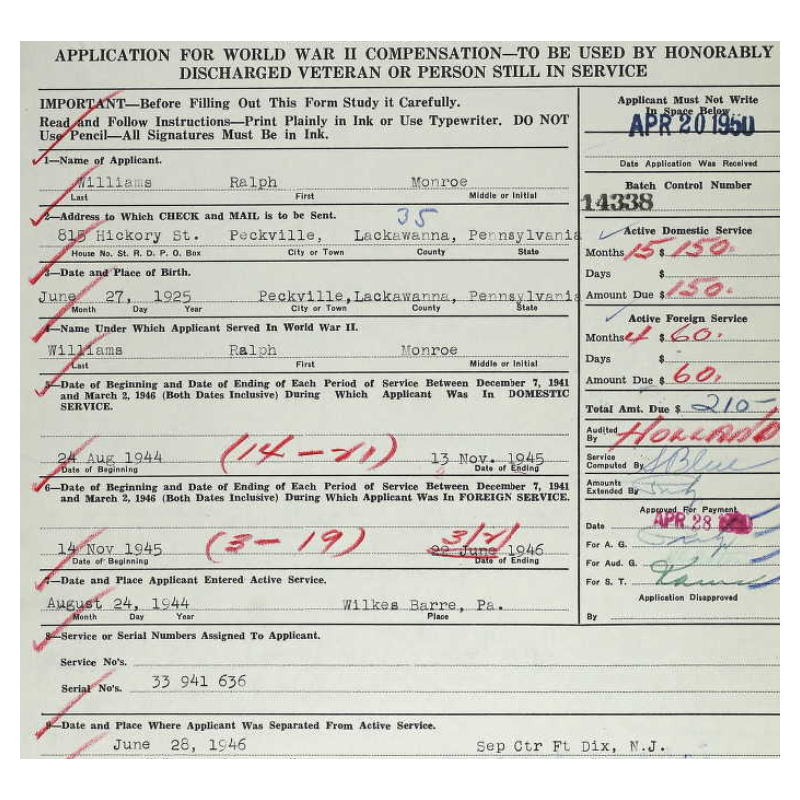 APPLICATION FOR WORLD WAR II COMPENSATION—TO BE USED BY HONORABLY
DISCHARGED VETERAN OR PERSON STILL IN SERVICE
IMPORTANT—Before Filling Out This Form Study it Carefully.
Read and Follow Instructions—Print Plainly in Ink or Use Typewriter. DO NOT
Use Pencil—All Signatures Must Be in Ink.
1—Name of Applicant.
Williams Ralph Monroe
Last First Middle or Initial
2—Address to Which CHECK and MAIL is to be Sent. 35
815 Hickory St. Peckville, Lackawanna, Pennsylvania
House No. St. R. D. P. O. Box City or Town County State
3—Date and Place of Birth.
June 27, 1925 Peckville, Lackawanna, Pennsylvania
Month Day Year City or Town County State
4—Name Under Which Applicant Served In World War II.
Williams Ralph Monroe
Last First Middle or Initial
5—Date of Beginning and Date of Ending of Each Period of Service Between December 7, 1941
and March 2, 1946 (Both Dates Inclusive) During Which Applicant Was In DOMESTIC
SERVICE.
24 Aug 1944 (14-21) 13 Nov. 1945
Date of Beginning Date of Ending
6—Date of Beginning and Date of Ending of Each Period of Service Between December 7, 1941
and March 2, 1946 (Both Dates Inclusive) During Which Applicant Was In FOREIGN SERVICE.
3/2/
14 Nov 1945 (3-19) 22 June 1946
Date of Beginning Date of Ending
7—Date and Place Applicant Entered Active Service.
August 24, 1944 Wilkes Barre, Pa.
Month Day Year Place
8—Service or Serial Numbers Assigned To Applicant.
Service No's.
Serial No's. 33 941 636
9—Date and Place Where Applicant Was Separated From Active Service.
June 28, 1946 Sep Ctr Ft Dix, N.J.
Applicant Must Not Write
In Space Below
APR 20 1950
Date Application Was Received
Batch Control Number
14338
Active Domestic Service
Months 15 $ 150.
Days $
Amount Due $ 150.
Active Foreign Service
Months 4 $ 60.
Days $
Amount Due $ 60.
Total Amt. Due $ 210-
Audited
By HOLLAND
Service
Computed By S Blue
Amounts
Extended By
Approved For Payment
Date APR 28
For A. G.
For Aud. G.
For S. T.
Application Disapproved
By